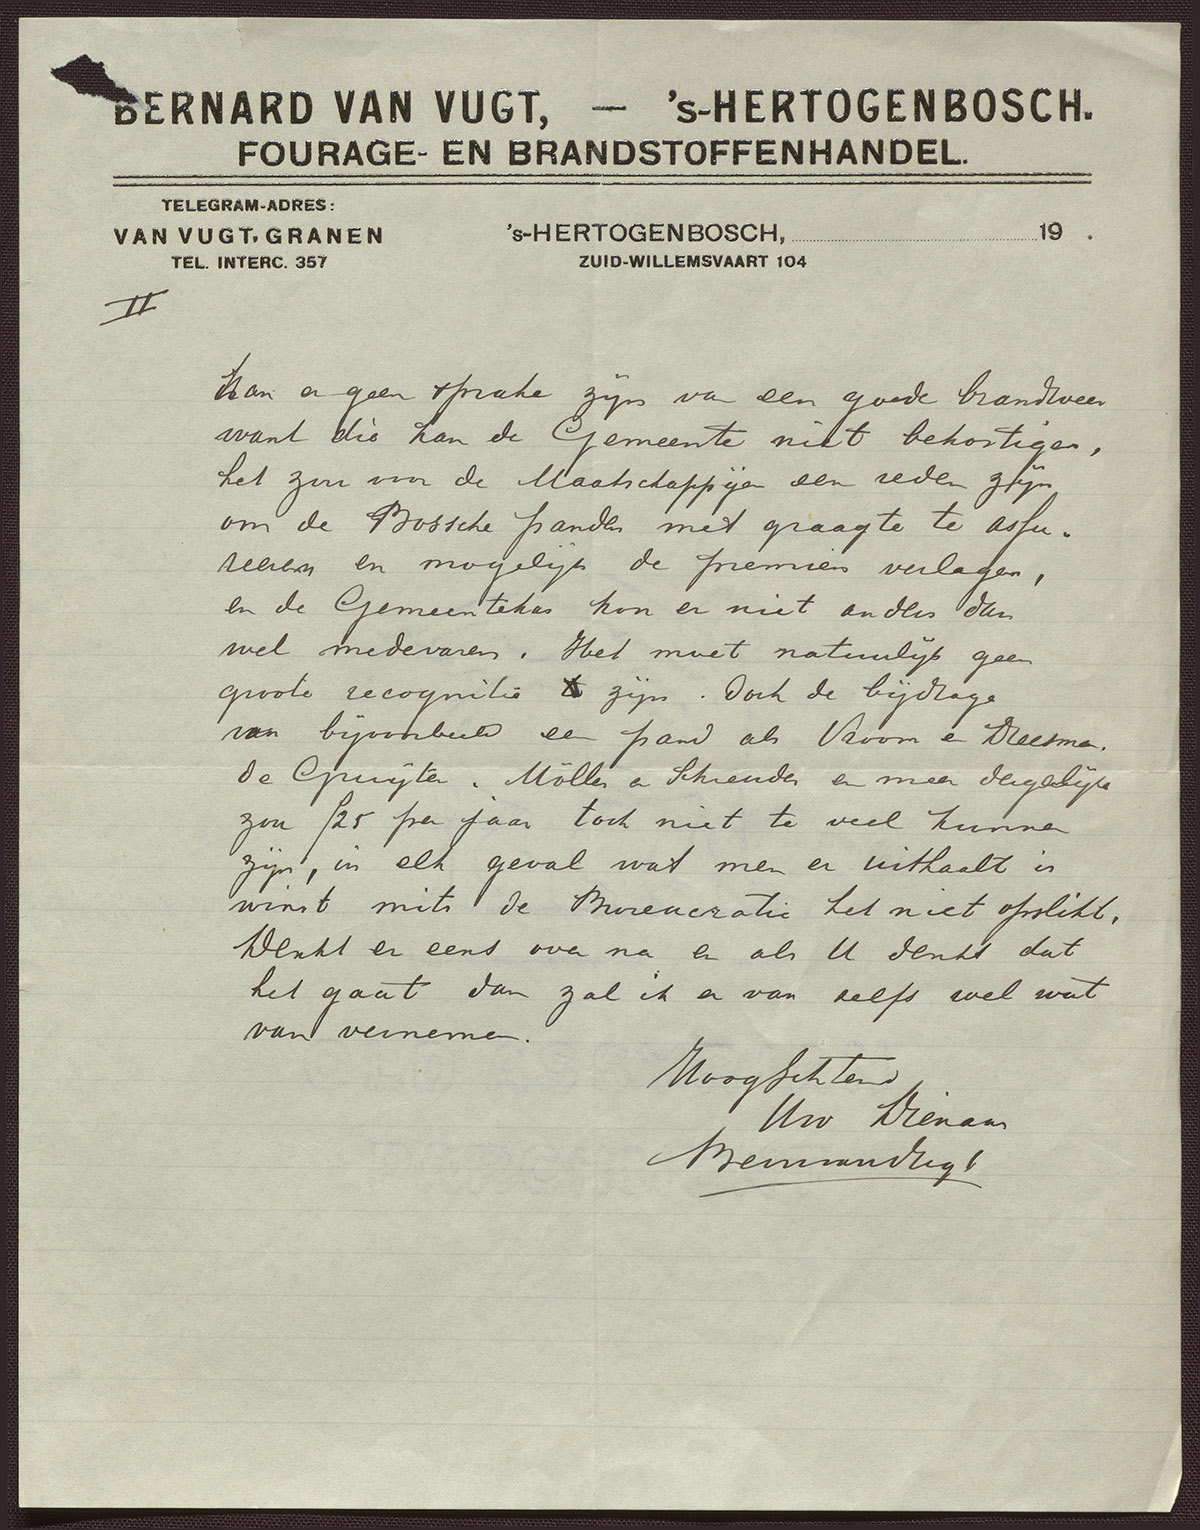 BERNARD VAN VUGT, — 's-HERTOGENBOSCH.
FOURAGE- EN BRANDSTOFFENHANDEL.
TELEGRAM-ADRES:
VAN VUGT, GRANEN
TEL. INTERC. 357
's-HERTOGENBOSCH, 19 .
ZUID-WILLEMSVAART 104
II
kan er geen sprake zijn van een goede brandweer
want die kan de Gemeente niet bekostigen,
het zou voor de Maatschappijen een reden zijn
om de Bossche panden met graagte te assu-
reeren en mogelijk de premien verlagen,
en de Gemeentekas kon er niet anders dan
wel medevaren. Het moet natuurlijk geen
groote recognitie zijn. Doch de bijdrage
van bijvoorbeeld een pand als Vroom en Dreesman.
de Gruijter. Möller en Schreuder en meer dergelijke
zou ƒ25 per jaar toch niet te veel kunnen
zijn, in elk geval wat men er uithaalt is
winst mits de Bureucratie het niet opslikt.
Denkt er eens over na en als U denkt dat
het gaat dan zal ik er van zelfs wel wat
van vernemen.
Hoogachtend
Uw Dienaar
Bernvanvugt